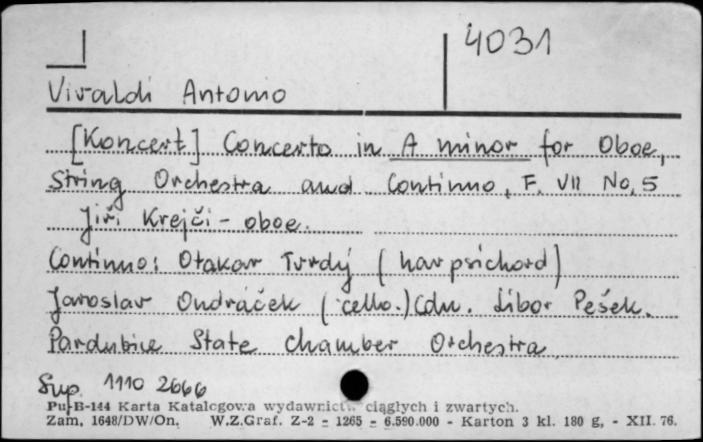 4031
Vivaldi Antonio
[Koncert] Concerto in A minor for Oboe,
String Orchestra and Continuo, F. VII No. 5
Jiří Krejči - oboe.
Continuo: Otakar Tvrdý (harpsichord)
Jaroslav Ondráček (cello.) Cdn. Libor Pešek.
Pardubice State Chamber Orchestra
Sup. 1110 2666
Pu-B-144 Karta Katalogowa wydawnictw ciągłych i zwartych.
Zam. 1648/DW/On. W.Z.Graf. Z-2 - 1265 - 6.590.000 - Karton 3 kl. 180 g. - XII. 76.